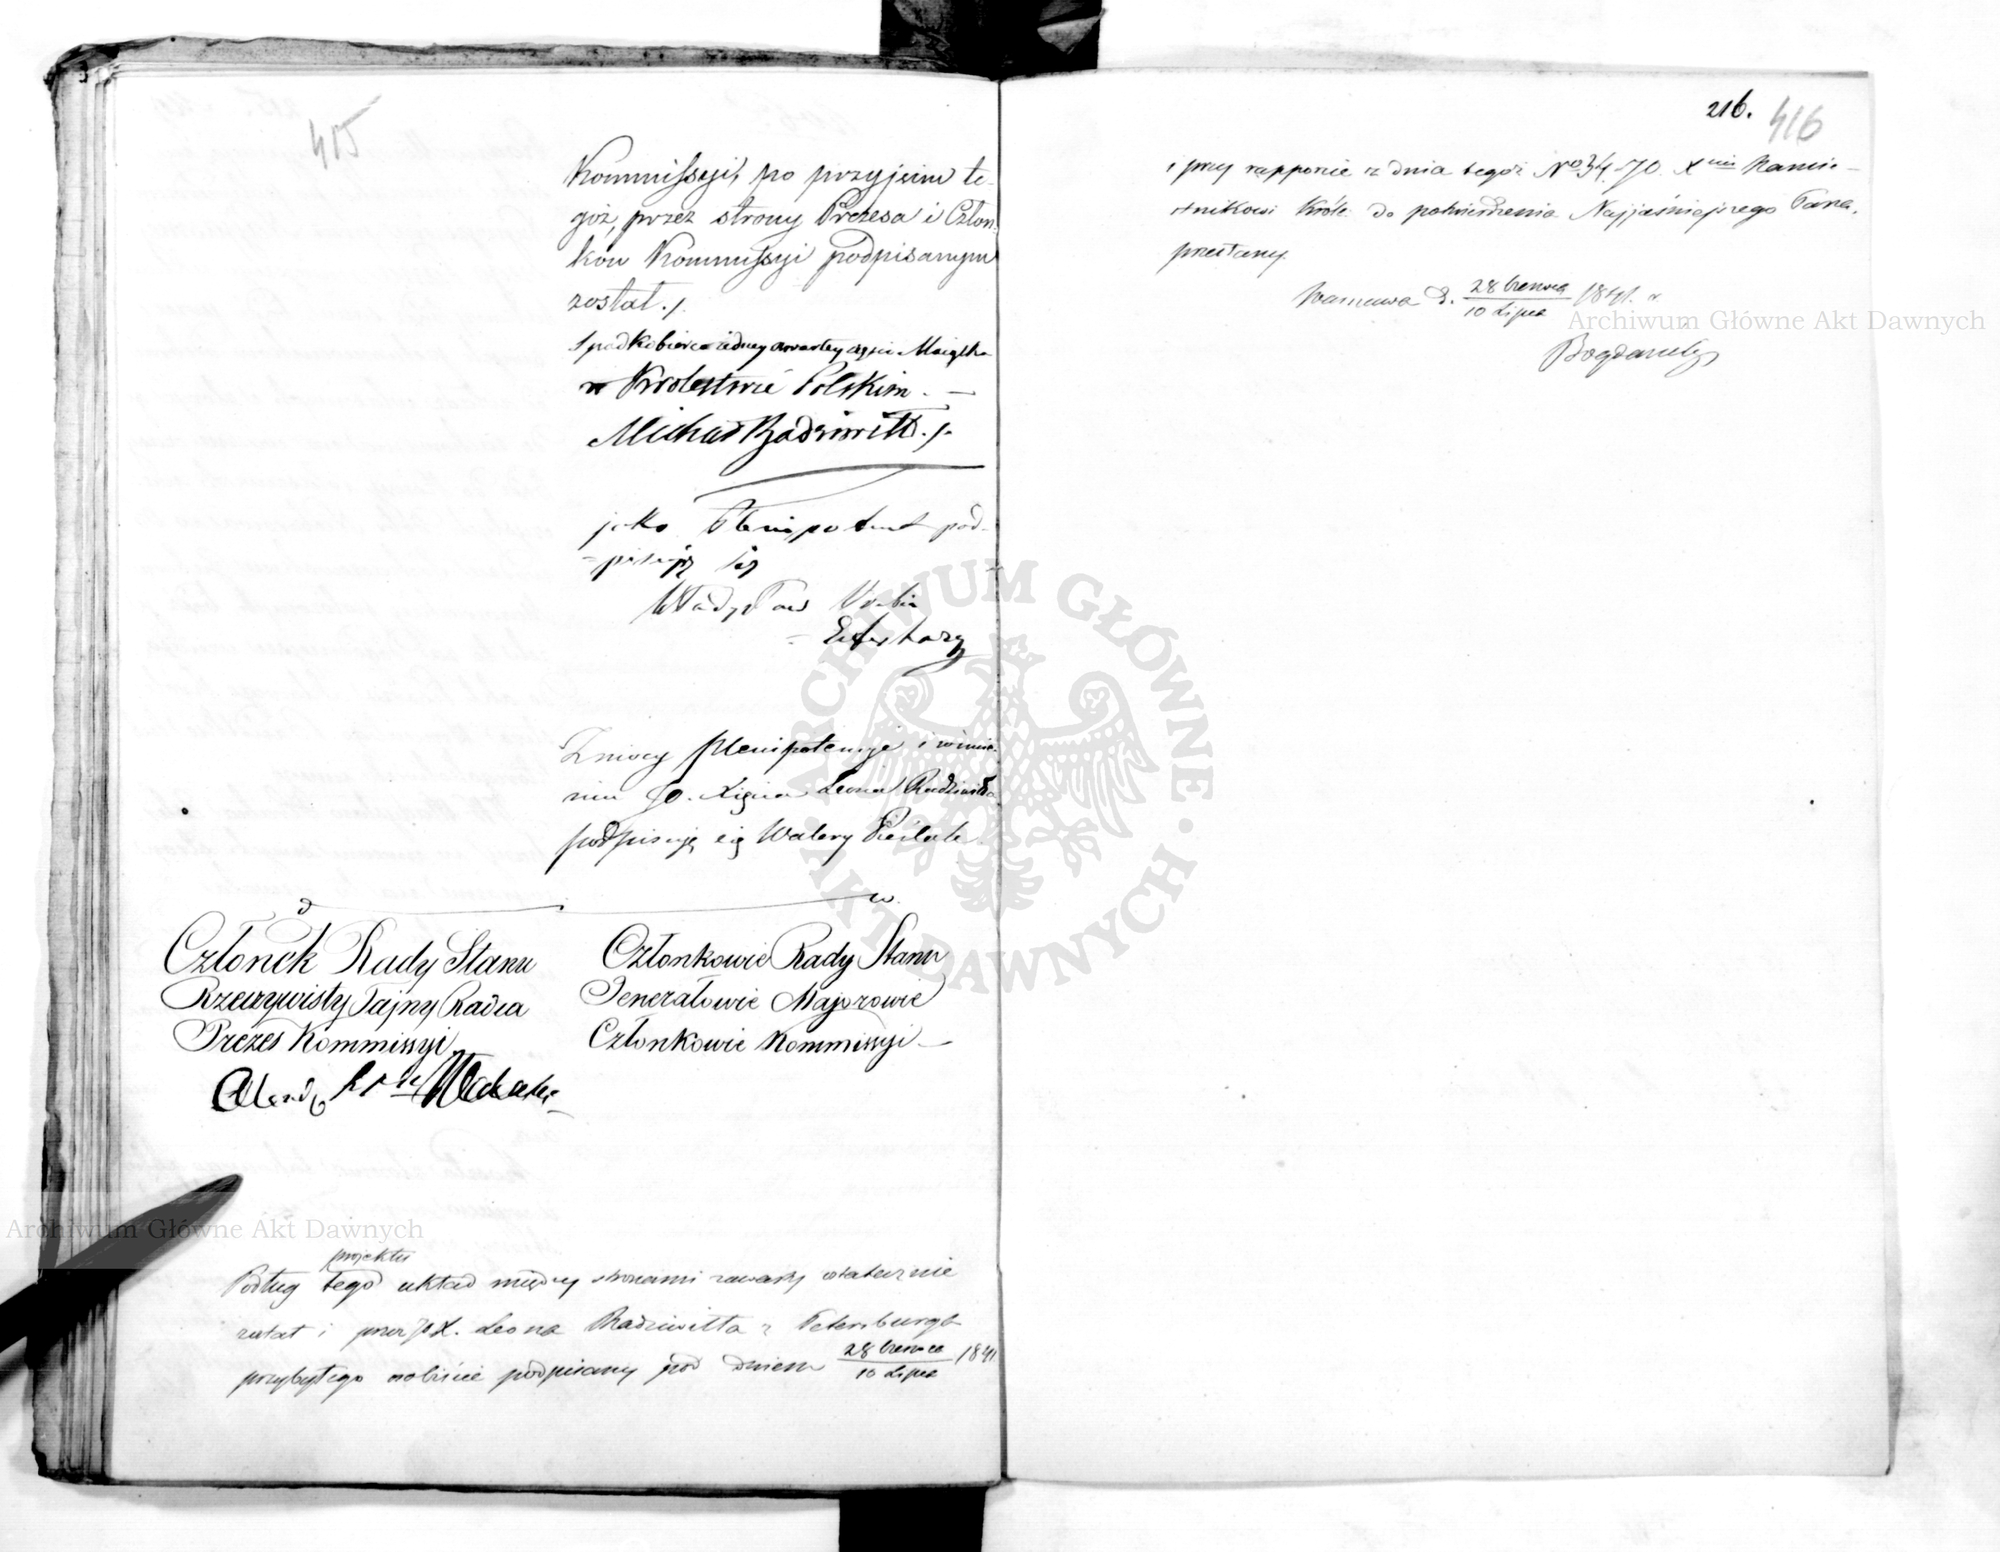 415
Kommissyi, po przyjęciu te-
goż, przez strony Prezesa i Człon-
ków Kommissyi podpisanym
został./.
Spadkobierca iedney czwartey części Maiątku
w Krolestwie Polskim. —
Michał Radziwiłł./.
jako Plenipotent pod-
-pisuję się
Władysław Hrabia
- Esterhazy
Z mocy plenipotencyi i w imie-
niu JO. Xięcia Leona Radziwiłła
podpisuję się Walery
Członek Rady Stanu
Rzeczywisty Tajny Radca
Prezes Kommissyi
Członkowie Rady Stanu
Jenerałowie Majorowie
Członkowie Kommissyi —
projektu
Podług tego układ między stronami zawarty ostatecznie
został i przez JOX. Leona Radziwiłła z Petersburga
przybyłego osobiście podpisany pod dniem 28 Czerwca / 10 Lipca 1841
216. 416
i przy rapporcie z dnia tegoż No 34.-70. Xciu Namie-
stnikowi Król: do potwierdzenia Najjaśniejszego Pana,
przesłany.
Warszawa d. 28 Czerwca / 10 Lipca 1841. r.
Archiwum Główne Akt Dawnych
Archiwum Główne Akt Dawnych
ARCHIWUM GŁÓWNE AKT DAWNYCH